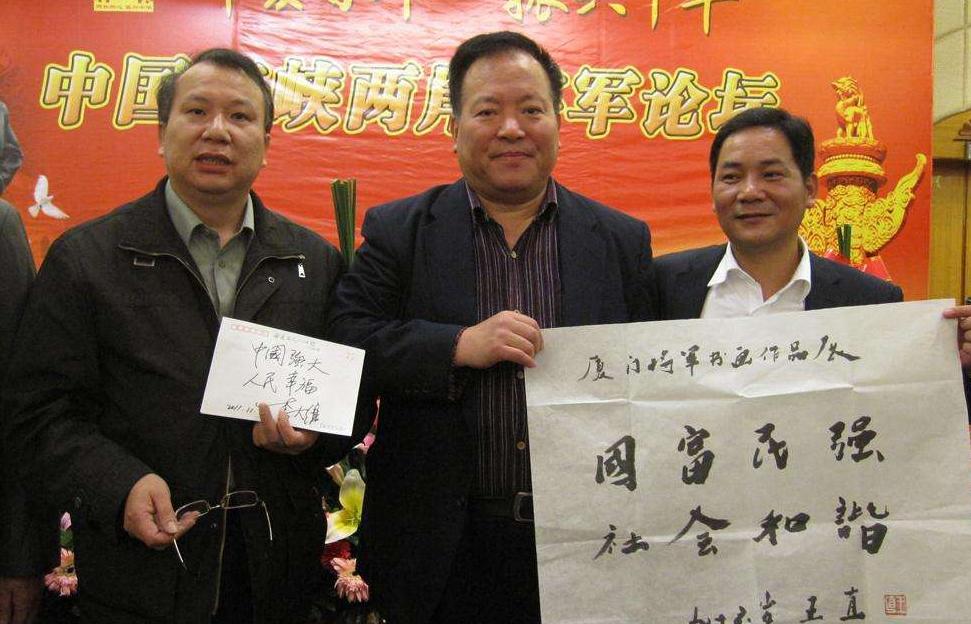 振兴中华
中国 峡两岸 军论坛
中國強大
人民幸福
2011.11
李大维
厦门将军书画作品展
國富民强
社会和諧
王直